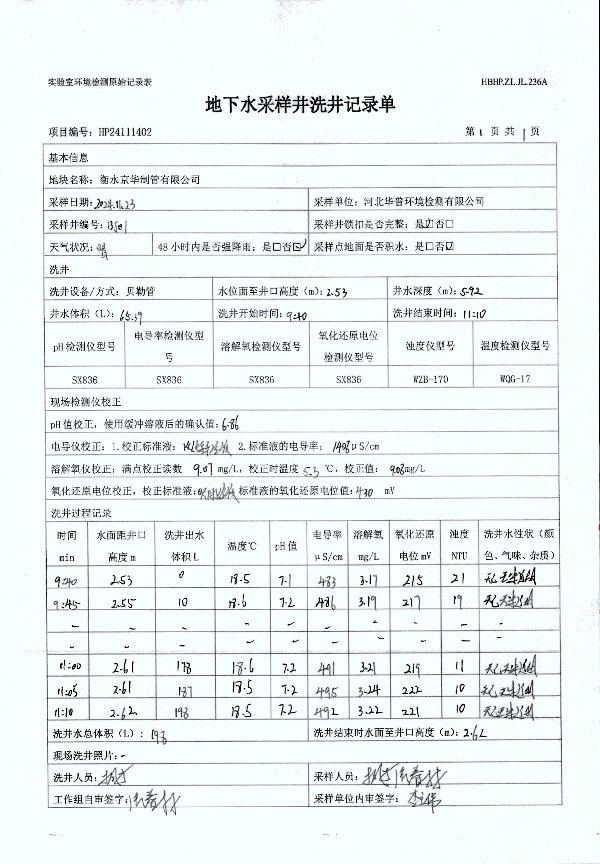 实验室环境检测原始记录表 HBHP.ZL.JL.236A
地下水采样井洗井记录单
项目编号: HP24111402 第1页 共1页
基本信息
地块名称: 衡水京华制管有限公司
采样日期: 2024.11.23 采样单位: 河北华普环境检测有限公司
采样井编号: 采样井锁扣是否完整: 是☑否□
天气状况: 晴 48小时内是否强降雨: 是□否☑ 采样点地面是否积水: 是□否☑
洗井
洗井设备/方式: 贝勒管 水位面至井口高度(m): 2.53 井水深度(m): 5.92
井水体积(L): 65.39 洗井开始时间: 9:40 洗井结束时间: 11:10
pH检测仪型号 电导率检测仪型号 溶解氧检测仪型号 氧化还原电位检测仪型号 浊度仪型号 温度检测仪型号
SX836 SX836 SX836 SX836 WZB-170 WQG-17
现场检测仪校正
pH值校正, 使用缓冲溶液后的确认值: 6.86
电导仪校正: 1.校正标准液: 2.标准液的电导率: 1408 μS/cm
溶解氧仪校正: 满点校正读数 9.07 mg/L, 校正时温度 5.3 ℃, 校正值: 9.08 mg/L
氧化还原电位校正, 校正标准液: 标准液的氧化还原电位值: 430 mV
洗井过程记录
时间 min 水面距井口高度 m 洗井出水体积 L 温度℃ pH值 电导率 μS/cm 溶解氧 mg/L 氧化还原电位 mV 浊度 NTU 洗井水性状(颜色、气味、杂质)
9:40 2.53 0 18.5 7.1 483 3.17 215 21
9:45 2.55 10 18.6 7.2 486 3.19 217 19
- - - - - - - - - -
- - - - - - - - - -
11:00 2.61 178 18.6 7.2 491 3.21 219 11
11:05 2.61 187 18.5 7.2 495 3.24 222 10
11:10 2.62 198 18.5 7.2 492 3.22 221 10
洗井水总体积(L): 198 洗井结束时水面至井口高度(m): 2.62
现场洗井照片: -
洗井人员: 采样人员:
工作组自审签字: 采样单位内审签字: